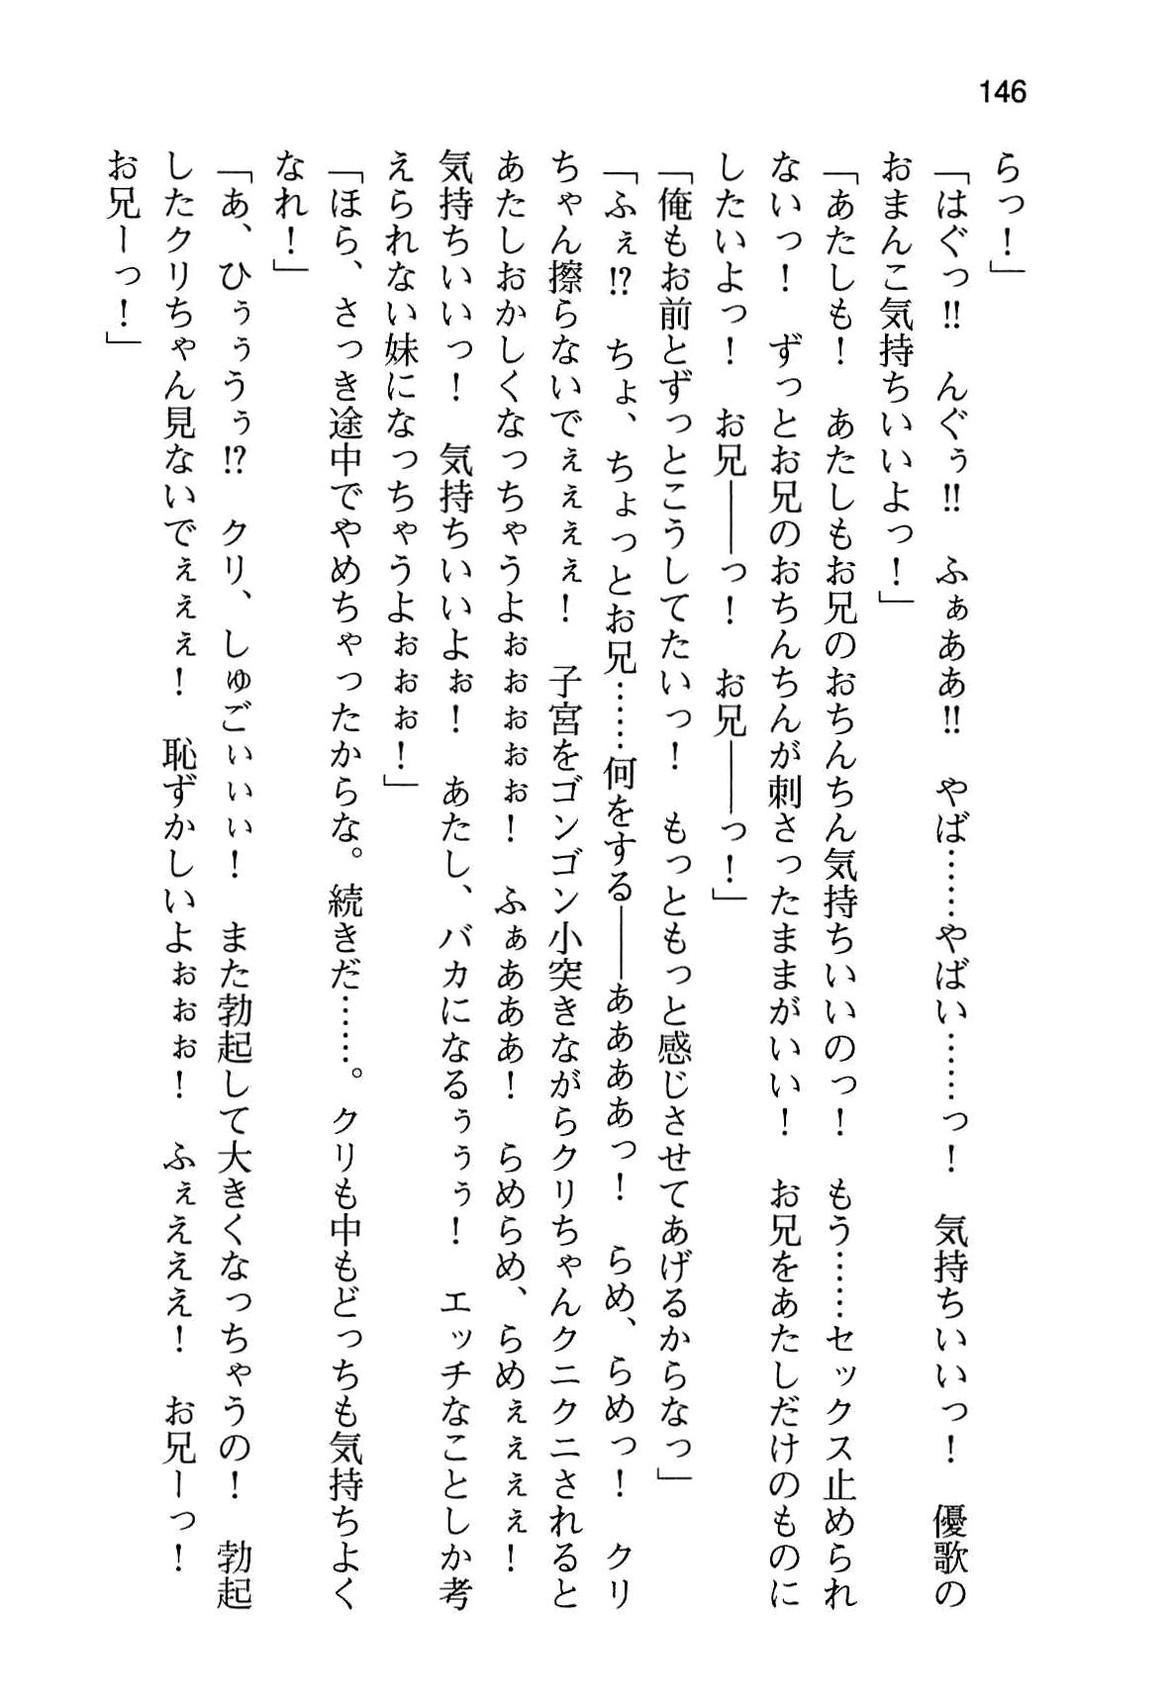 146
らっ！」
「はぐっ‼　んぐぅ‼　ふぁああ‼　やば……やばい……っ！　気持ちいいっ！　優歌の
おまんこ気持ちいいよっ！」
「あたしも！　あたしもお兄のおちんちん気持ちいいのっ！　もう……セックス止められ
ないっ！　ずっとお兄のおちんちんが刺さったままがいい！　お兄をあたしだけのものに
したいよっ！　お兄――っ！　お兄――っ！」
「俺もお前とずっとこうしてたいっ！　もっともっと感じさせてあげるからなっ」
「ふぇ⁉　ちょ、ちょっとお兄……何をする――ああああっ！　らめ、らめっ！　クリ
ちゃん擦らないでぇぇぇぇ！　子宮をゴンゴン小突きながらクリちゃんクニクニされると
あたしおかしくなっちゃうよぉぉぉぉぉ！　ふぁあああ！　らめらめ、らめぇぇぇぇ！
気持ちいいっ！　気持ちいいよぉ！　あたし、バカになるぅぅぅ！　エッチなことしか考
えられない妹になっちゃうよぉぉぉ！」
「ほら、さっき途中でやめちゃったからな。続きだ……。クリも中もどっちも気持ちよく
なれ！」
「あ、ひぅぅうぅ⁉　クリ、しゅごぃぃぃ！　また勃起して大きくなっちゃうの！　勃起
したクリちゃん見ないでぇぇぇ！　恥ずかしいよぉぉぉ！　ふぇえええ！　お兄ーっ！
お兄ーっ！」